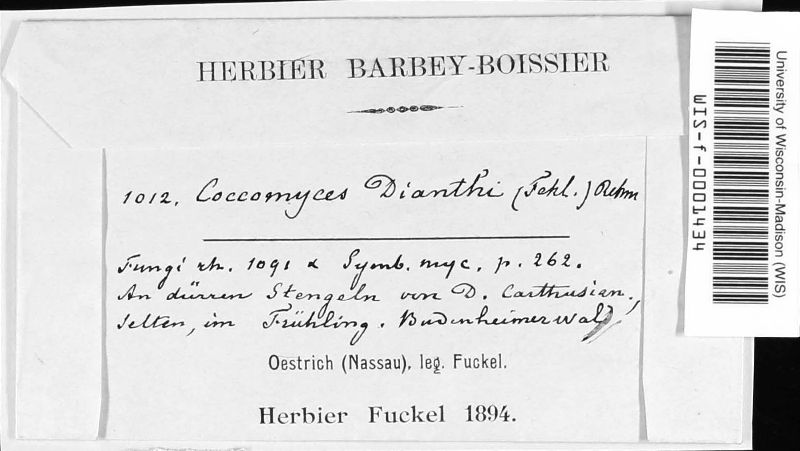 HERBIER BARBEY-BOISSIER
1012. Coccomyces Dianthi (Fckl.) Rehm
Fungi rh. 1091 & Symb. myc. p. 262.
An dürren Stengeln von D. Carthusian.,
selten, im Frühling. Budenheimerwald
Oestrich (Nassau), leg. Fuckel.
Herbier Fuckel 1894.
University of Wisconsin-Madison (WIS)
WIS-f-0001434